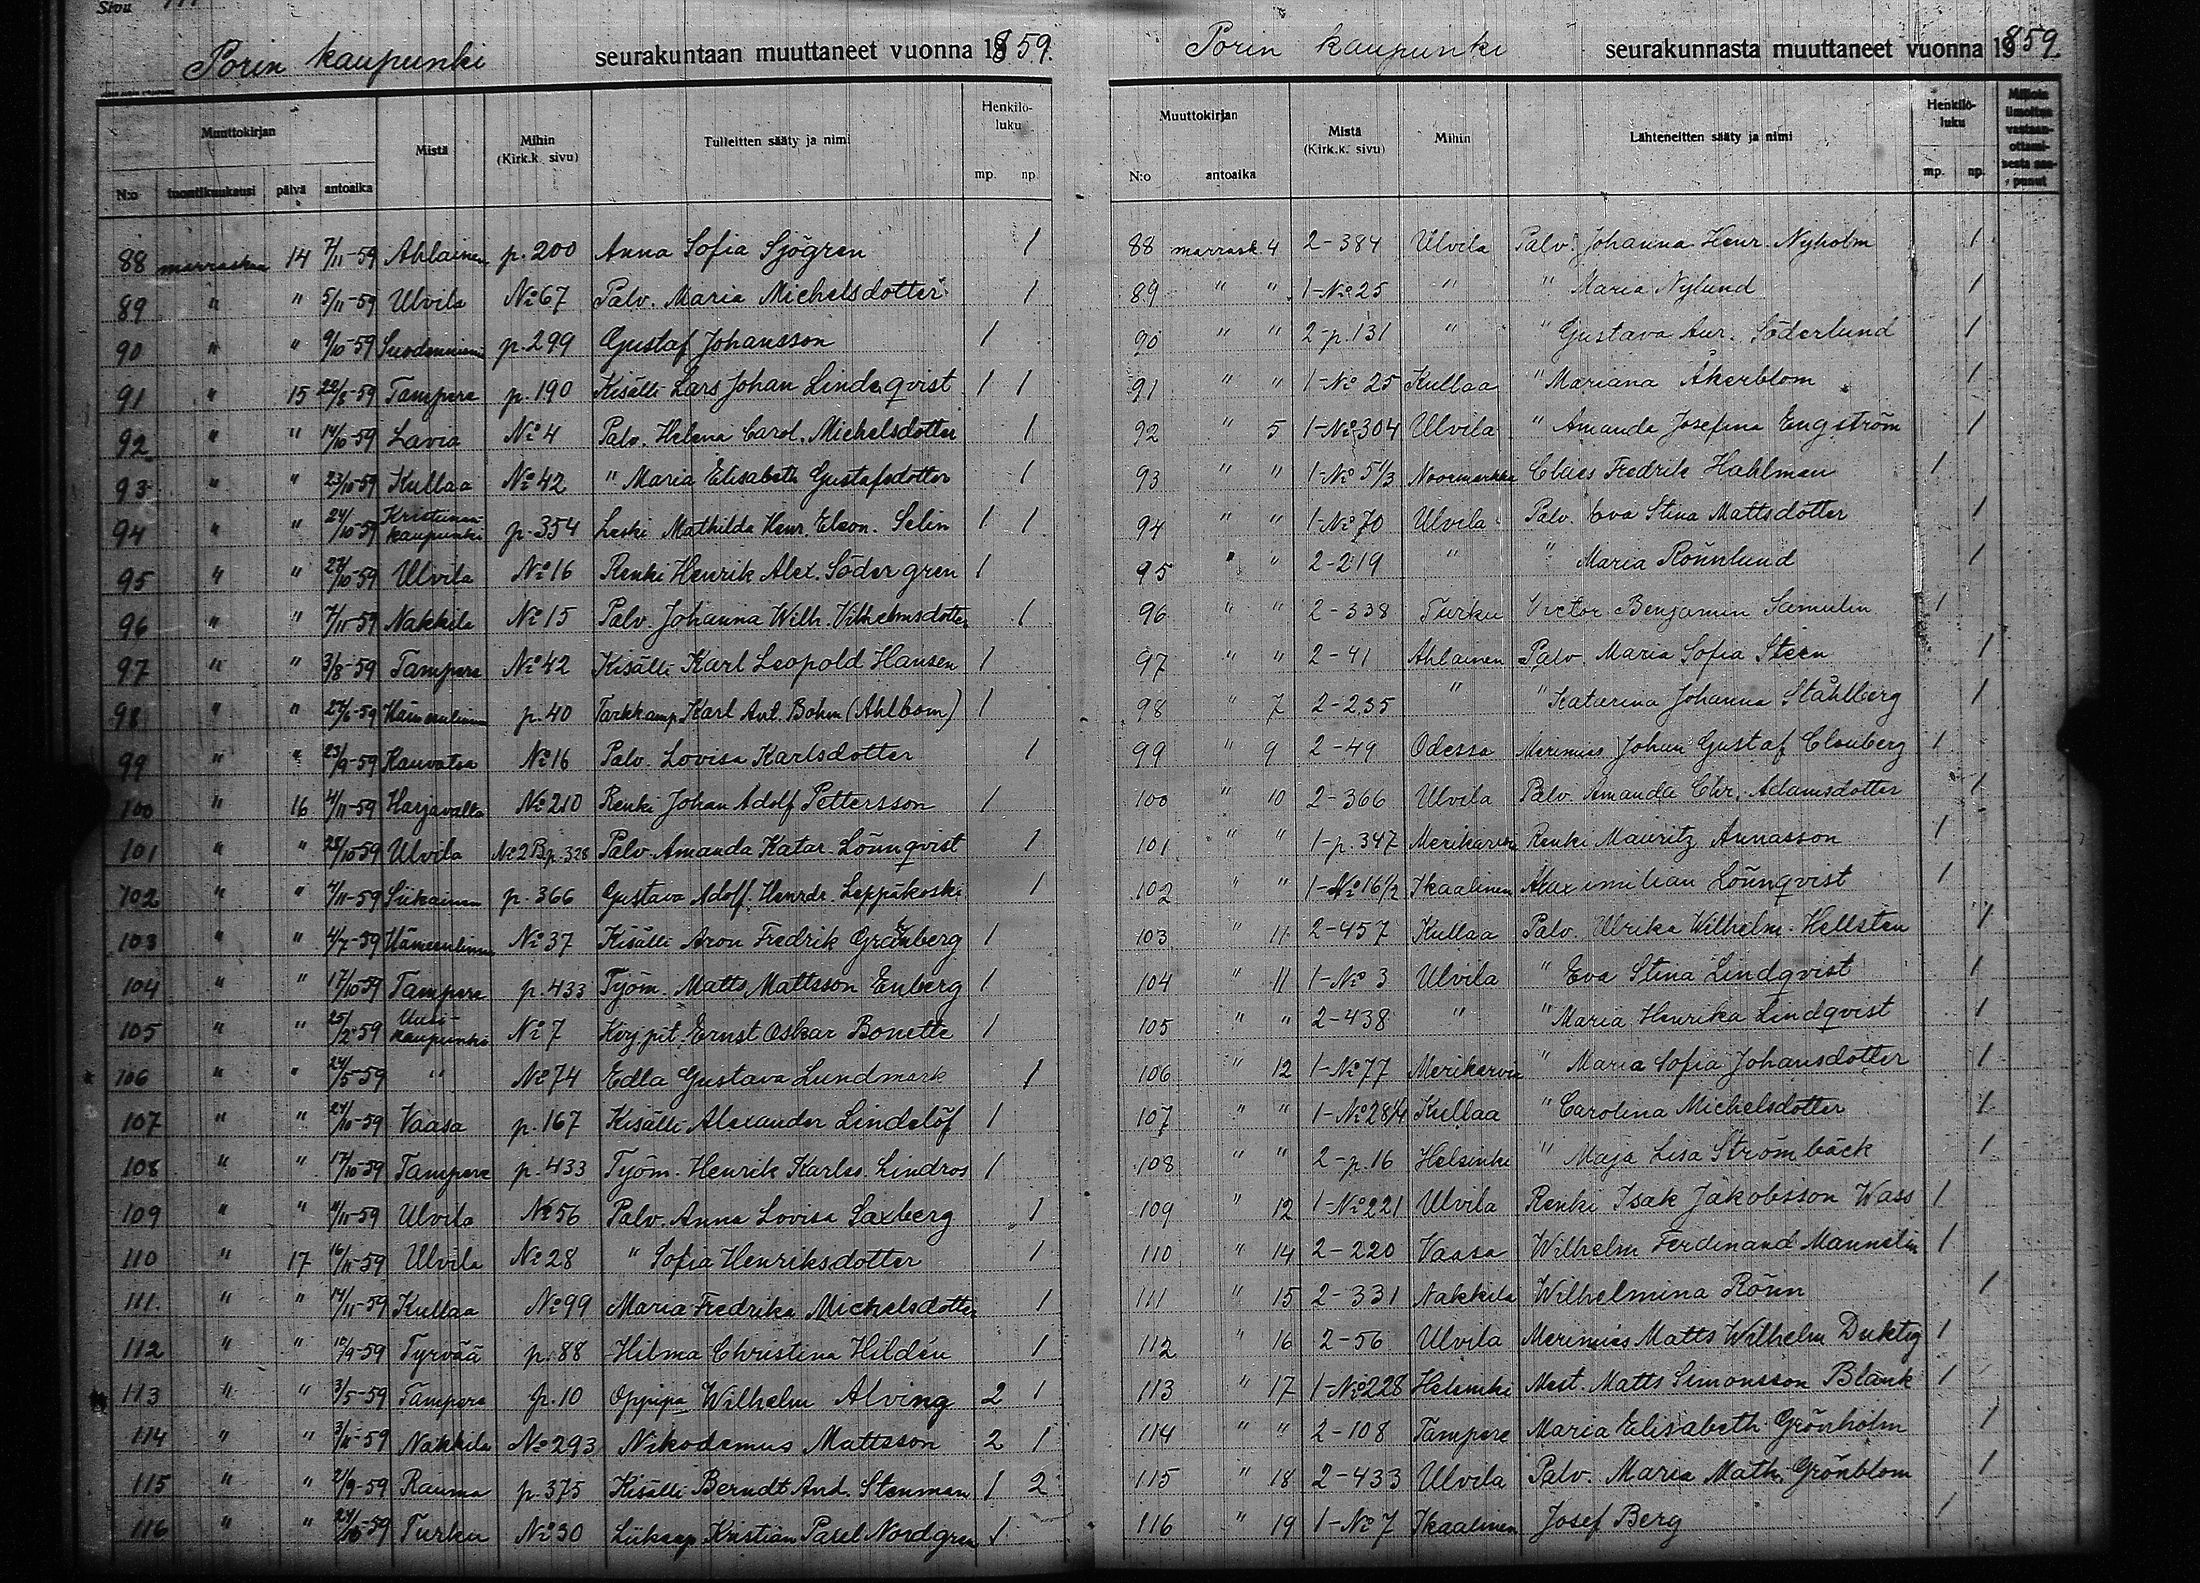 Sivu
Porin kaupunki seurakuntaan muuttaneet vuonna 1859.
Muuttokirjan Mistä Mihin (Kirk.k. sivu) Tulleitten sääty ja nimi Henkilö-luku
N:o tuontikuukausi päivä antoaika mp. np.
88 marraskuu 14 7/11-59 Ahlainen p. 200 Anna Sofia Sjögren 1
89 " " 5/11-59 Ulvila No 67 Palv. Maria Michelsdotter 1
90 " " 9/10-59 Suodenniemi p. 299 Gustaf Johansson 1
91 " 15 22/8-59 Tampere p. 190 Kisälli Lars Johan Lindeqvist 1 1
92 " " 14/10-59 Lavia No 4 Palv. Helena Carol. Michelsdotter 1
93 " " 23/10-59 Kullaa No 42 " Maria Elisabeth Gustafsdotter 1
94 " " 24/10-59 Kristiinankaupunki p. 354 Leski Mathilda Henr. Eleon. Selin 1 1
95 " " 27/10-59 Ulvila No 16 Renki Henrik Alex. Södergren 1
96 " " 7/11-59 Nakkila No 15 Palv. Johanna Wilh. Vilhelmsdotter 1
97 " " 3/8-59 Tampere No 42 Kisälli Karl Leopold Hansen 1
98 " " 27/6-59 Hämeenlinna p. 40 Tarkkamp. Karl Ant. Bohm (Ahlbom) 1
99 " " 23/9-59 Kauvatsa No 16 Palv. Lovisa Karlsdotter 1
100 " 16 4/11-59 Harjavalta No 210 Renki Johan Adolf Pettersson 1
101 " " 28/10-59 Ulvila No 2 B p. 328 Palv. Amanda Katar. Lönnqvist 1
102 " " 4/11-59 Siikainen p. 366 Gustava Adolf. Henrdr. Leppäkoski 1
103 " " 4/7-59 Hämeenlinna No 37 Kisälli Aron Fredrik Grönberg 1
104 " " 17/10-59 Tampere p. 433 Työm. Matts Mattsson Enberg 1
105 " " 25/2-59 Uusi-kaupunki No 7 Kirj.pit. Ernst Oskar Bonette 1
106 " " 24/5-59 " No 74 Edla Gustava Lundmark 1
107 " " 24/10-59 Vaasa p. 167 Kisälli Alexander Lindelöf 1
108 " " 17/10-59 Tampere p. 433 Työm. Henrik Karlss. Lindros 1
109 " " 11/11-59 Ulvila No 56 Palv. Anna Lovisa Saxberg 1
110 " 17 16/11-59 Ulvila No 28 " Sofia Henriksdotter 1
111. " " 14/11-59 Kullaa No 99 Maria Fredrika Michelsdotter 1
112 " " 12/9-59 Tyrvää p. 88 Hilma Christina Hildén 1
113 " " 3/5-59 Tampere p. 10 Oppipa Wilhelm Alving 2 1
114 " " 3/11-59 Nakkila No 293 Nikodemus Mattsson 2 1
115 " " 21/9-59 Rauma p. 375 Kisälli Berndt And. Stenman 1 2
116 " " 24/10-59 Turku No 30 Kristian Nordgren 1
Porin kaupunki seurakunnasta muuttaneet vuonna 19859
Muuttokirjan Mistä (Kirk.k. sivu) Mihin Lähteneitten sääty ja nimi Henkilö-luku Milloin ilmoitus vastaan-ottami-sesta saa-punut
N:o antoaika mp. np.
88 marrask. 4 2-384 Ulvila Palv. Johanna Henr. Nyholm 1
89 " " 1-No 25 " " Maria Nylund 1
90 " " 2-p. 131 " " Gustava Aur. Söderlund 1
91 " " 1-No 25 Kullaa " Mariana Åkerblom 1
92 " 5 1-No 304 Ulvila " Amanda Josefina Engström 1
93 " " 1-No 51/3 Noormarkku Claes Fredrik Hahlman 1
94 " " 1-No 70 Ulvila Palv. Eva Stina Mattsdotter 1
95 " " 2-219 " " Maria Rönnlund 1
96 " " 2-338 Turku Victor Benjamin Samulin 1
97 " " 2-41 Ahlainen Palv. Maria Sofia Steen 1
98 " 7 2-235 " " Katarina Johanna Ståhlberg 1
99 " 9 2-49 Odessa Merimies Johan Gustaf Clouberg 1
100 " 10 2-366 Ulvila Palv. Amanda Chr. Adamsdotter 1
101 " " 1-p. 347 Merikarvia Renki Mauritz Annasson 1
102 " " 1-No 16/2 Ikaalinen Maximilian Lönnqvist 1
103 " 11 2-457 Kullaa Palv. Ulrika Wilhelm. Hellsten 1
104 " 11 1-No 3 Ulvila " Eva Stina Lindqvist 1
105 " " 2-438 " " Maria Henrika Lindqvist 1
106 " 12 1-No 77 Merikarvia " Maria Sofia Johansdotter 1
107 " " 1-No 28/4 Kullaa " Carolina Michelsdotter 1
108 " " 2-p. 16 Helsinki " Maja Lisa Strömbäck 1
109 " 12 1-No 221 Ulvila Renki Isak Jakobsson Wass 1
110 " 14 2-220 Vaasa Wilhelm Ferdinand Mannelin 1
111 " 15 2-331 Nakkila Wilhelmina Rönn 1
112 " 16 2-56 Ulvila Merimies Matts Wilhelm Duktig 1
113 " 17 1-No 228 Helsinki Mest. Matts Simonsson Blank 1
114 " " 2-108 Tampere Maria Elisabeth Grönholm 1
115 " 18 2-433 Ulvila Palv. Maria Math. Grönblom 1
116 " 19 1-No 7 Ikaalinen Josef Berg 1